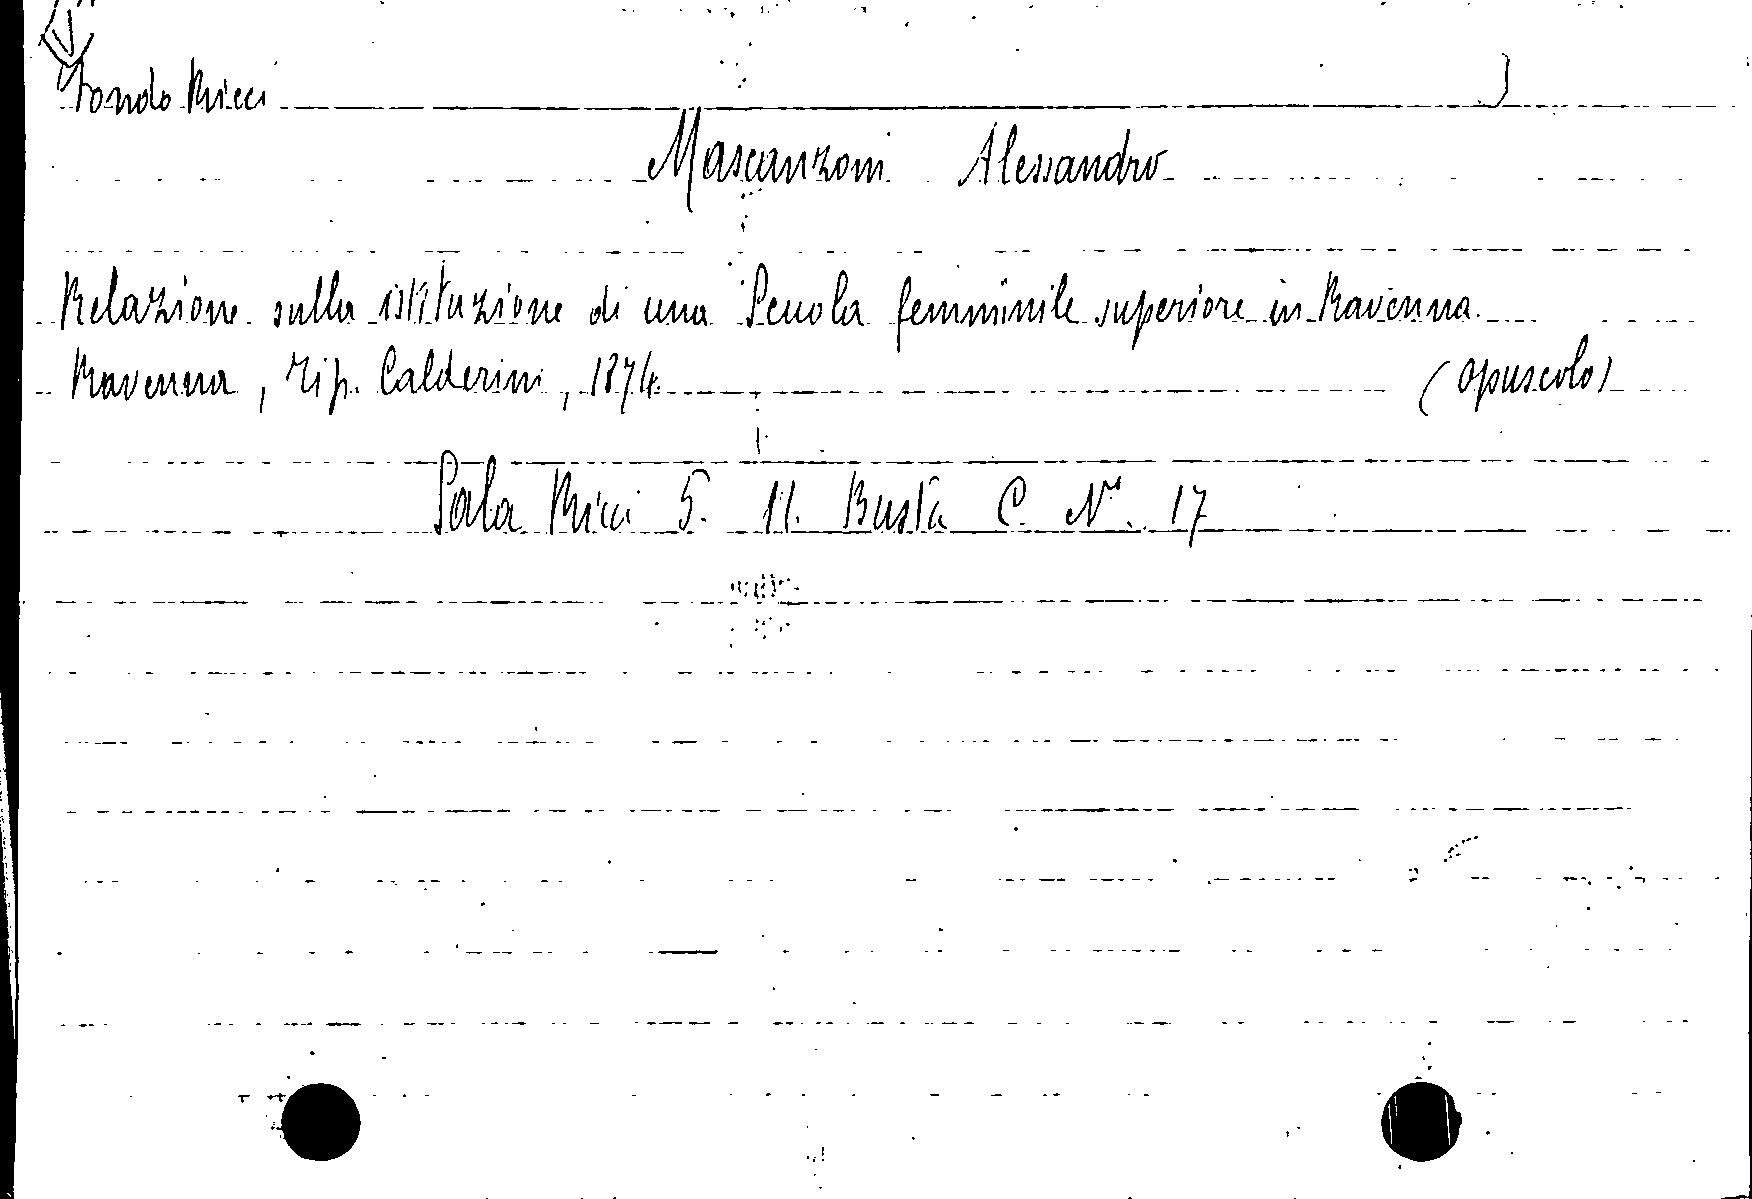 Fondo Ricci
Mascanzoni Alessandro
Relazione sulla istituzione di una Scuola femminile superiore in Ravenna.
Ravenna, Tip. Calderini, 1874. (opuscolo)
Sala Ricci 5. 11. Busta C. Nº. 17